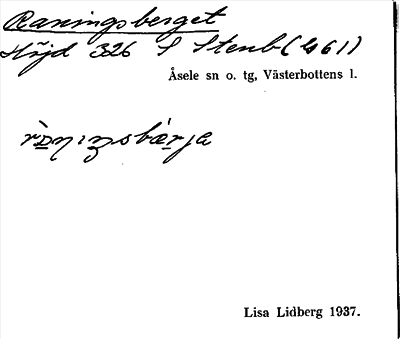 Raningsberget
Höjd 326 S Stenb (
Åsele sn o. tg, Västerbottens l.
Lisa Lidberg 1937.